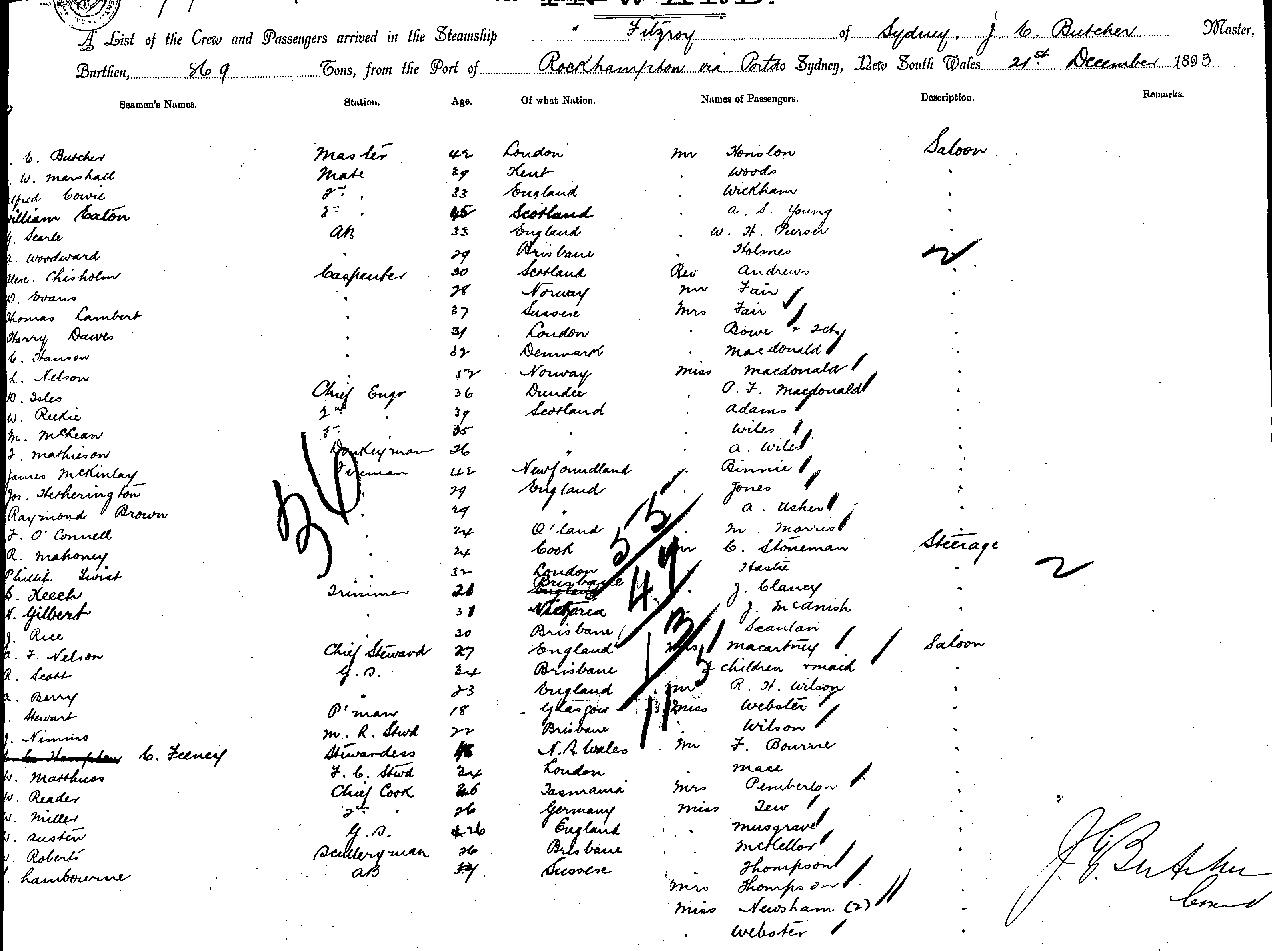 A List of the Crew and Passengers arrived in the Steamship " Fitzroy of Sydney, J C. Butcher Master,
Burthen, 869 Tons, from the Port of Rockhampton via Ports to Sydney, New South Wales 21st December 1893
Seamen's Names. Station. Age. Of what Nation. Names of Passengers. Description. Remarks.
C. Butcher Master 42 London Mr Honslon Saloon
W. Marshall Mate 39 Kent Woods
lfred Cowie 2nd 33 England Wickham
William Eaton 3rd 45 Scotland A. S. Young
Searle AB 33 England W. H. Purser
Woodward 29 Brisbane Holmes 2
Chisholm Carpenter 30 Scotland Rev Andrews
Evans 28 Norway Mr Fair
Thomas Lambert 37 Sussex Mrs Fair
Harry Dawes 31 London Bowe
C. Hanson 32 Denmark Macdonald
L. Nelson 52 Norway Miss Macdonald
Isles Chief Engr 36 Dundee O. F. Macdonald
W. Reekie 2nd 39 Scotland Adams
M. McLean 3rd 35 " Wiles
J. Mathieson Donkeyman 26 A. Wiles
James McKinlay Fireman 42 Newfoundland Binnie
Jos. Hetherington 29 England Jones
Raymond Brown 29 " A. Usher
O'Connell 24 Q'land M. Morris
R. Mahoney 24 Cork Mr C. Stoneman Steerage
Phillip Twist 32 London Hastie 2
Keech Trimmer 21 Brisbane England J. Clancy
Gilbert 31 Victoria J. McAnish
J. Rice 20 Brisbane Scanlan
F. Nelson Chief Steward 27 England Mrs Macartney Saloon
Scott G.S. 24 Brisbane children & maid
Berry " 23 England Mr R. H. Wilson
Stewart P'man 18 Glasgow Miss Webster
J. Nimmo M. R. Stwd 22 Brisbane Wilson
C. Feeney Stewardess 48 N.S. Wales Mr F. Bourne
W. Matthews F. C. Stwd 24 London Mace
W. Reader Chief Cook Tasmania Mrs Pemberton
W. Miller 2nd 26 Germany Miss Tew
W. Austin G.S. 26 England Musgrave
W. Roberts Scullery man 26 Brisbane McKellor
Lambourne AB Sussex Thompson
Mrs Thompson
Miss Newsham (2)
Webster
36
55
49
13
5
11
J. C. Butcher